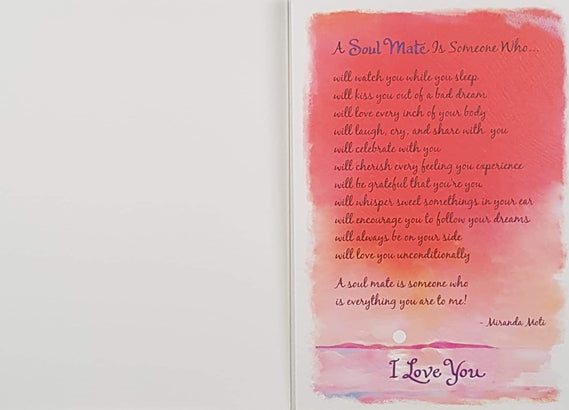 A Soul Mate Is Someone Who...
will watch you while you sleep
will kiss you out of a bad dream
will love every inch of your body
will laugh, cry, and share with you
will celebrate with you
will cherish every feeling you experience
will be grateful that you're you
will whisper sweet somethings in your ear
will encourage you to follow your dreams
will always be on your side
will love you unconditionally
A soul mate is someone who
is everything you are to me!
- Miranda Moti
I Love You